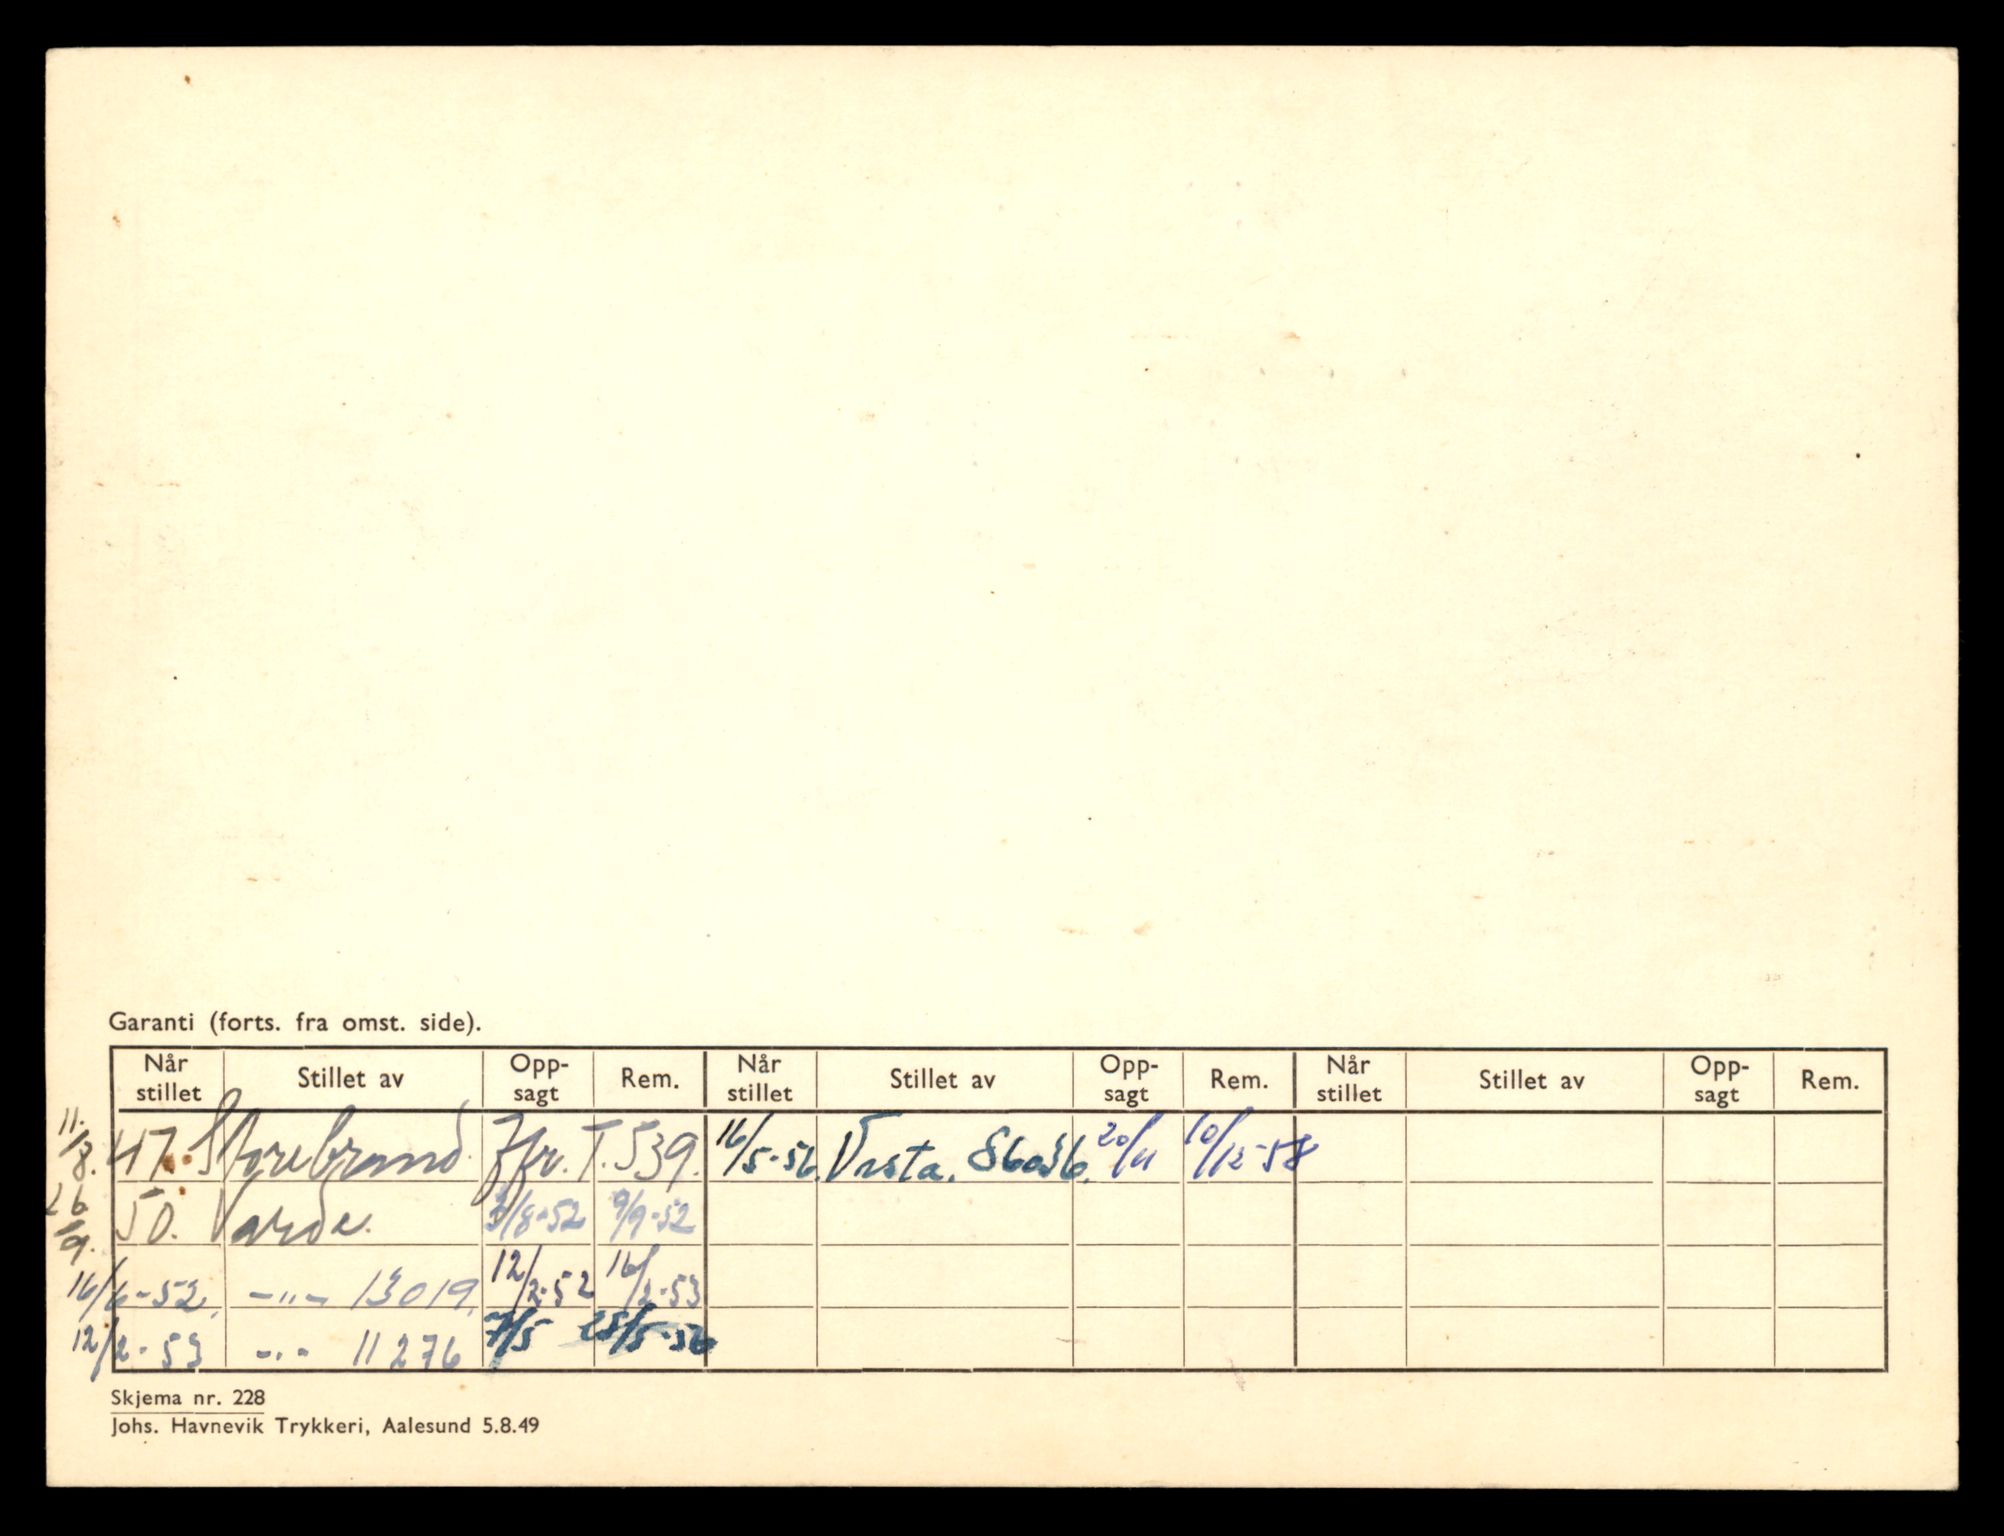 Garanti (forts. fra omst. side).
Når stillet Stillet av Opp-sagt Rem. Når stillet Stillet av Opp-sagt Rem. Når stillet Stillet av Opp-sagt Rem.
11./8. 47. Storebrand Ifr. T. 539. 16/5-56. Vesta. 86036. 20/11 10/12-58
26/9. 50. Varde. 3/8-52 9/9-52
16/6-52. -"- 13019. 12/2-52 16/2-53
12/2-53 -"- 11276 7/5 25/5-56
Skjema nr. 228
Johs. Havnevik Trykkeri, Aalesund 5.8.49